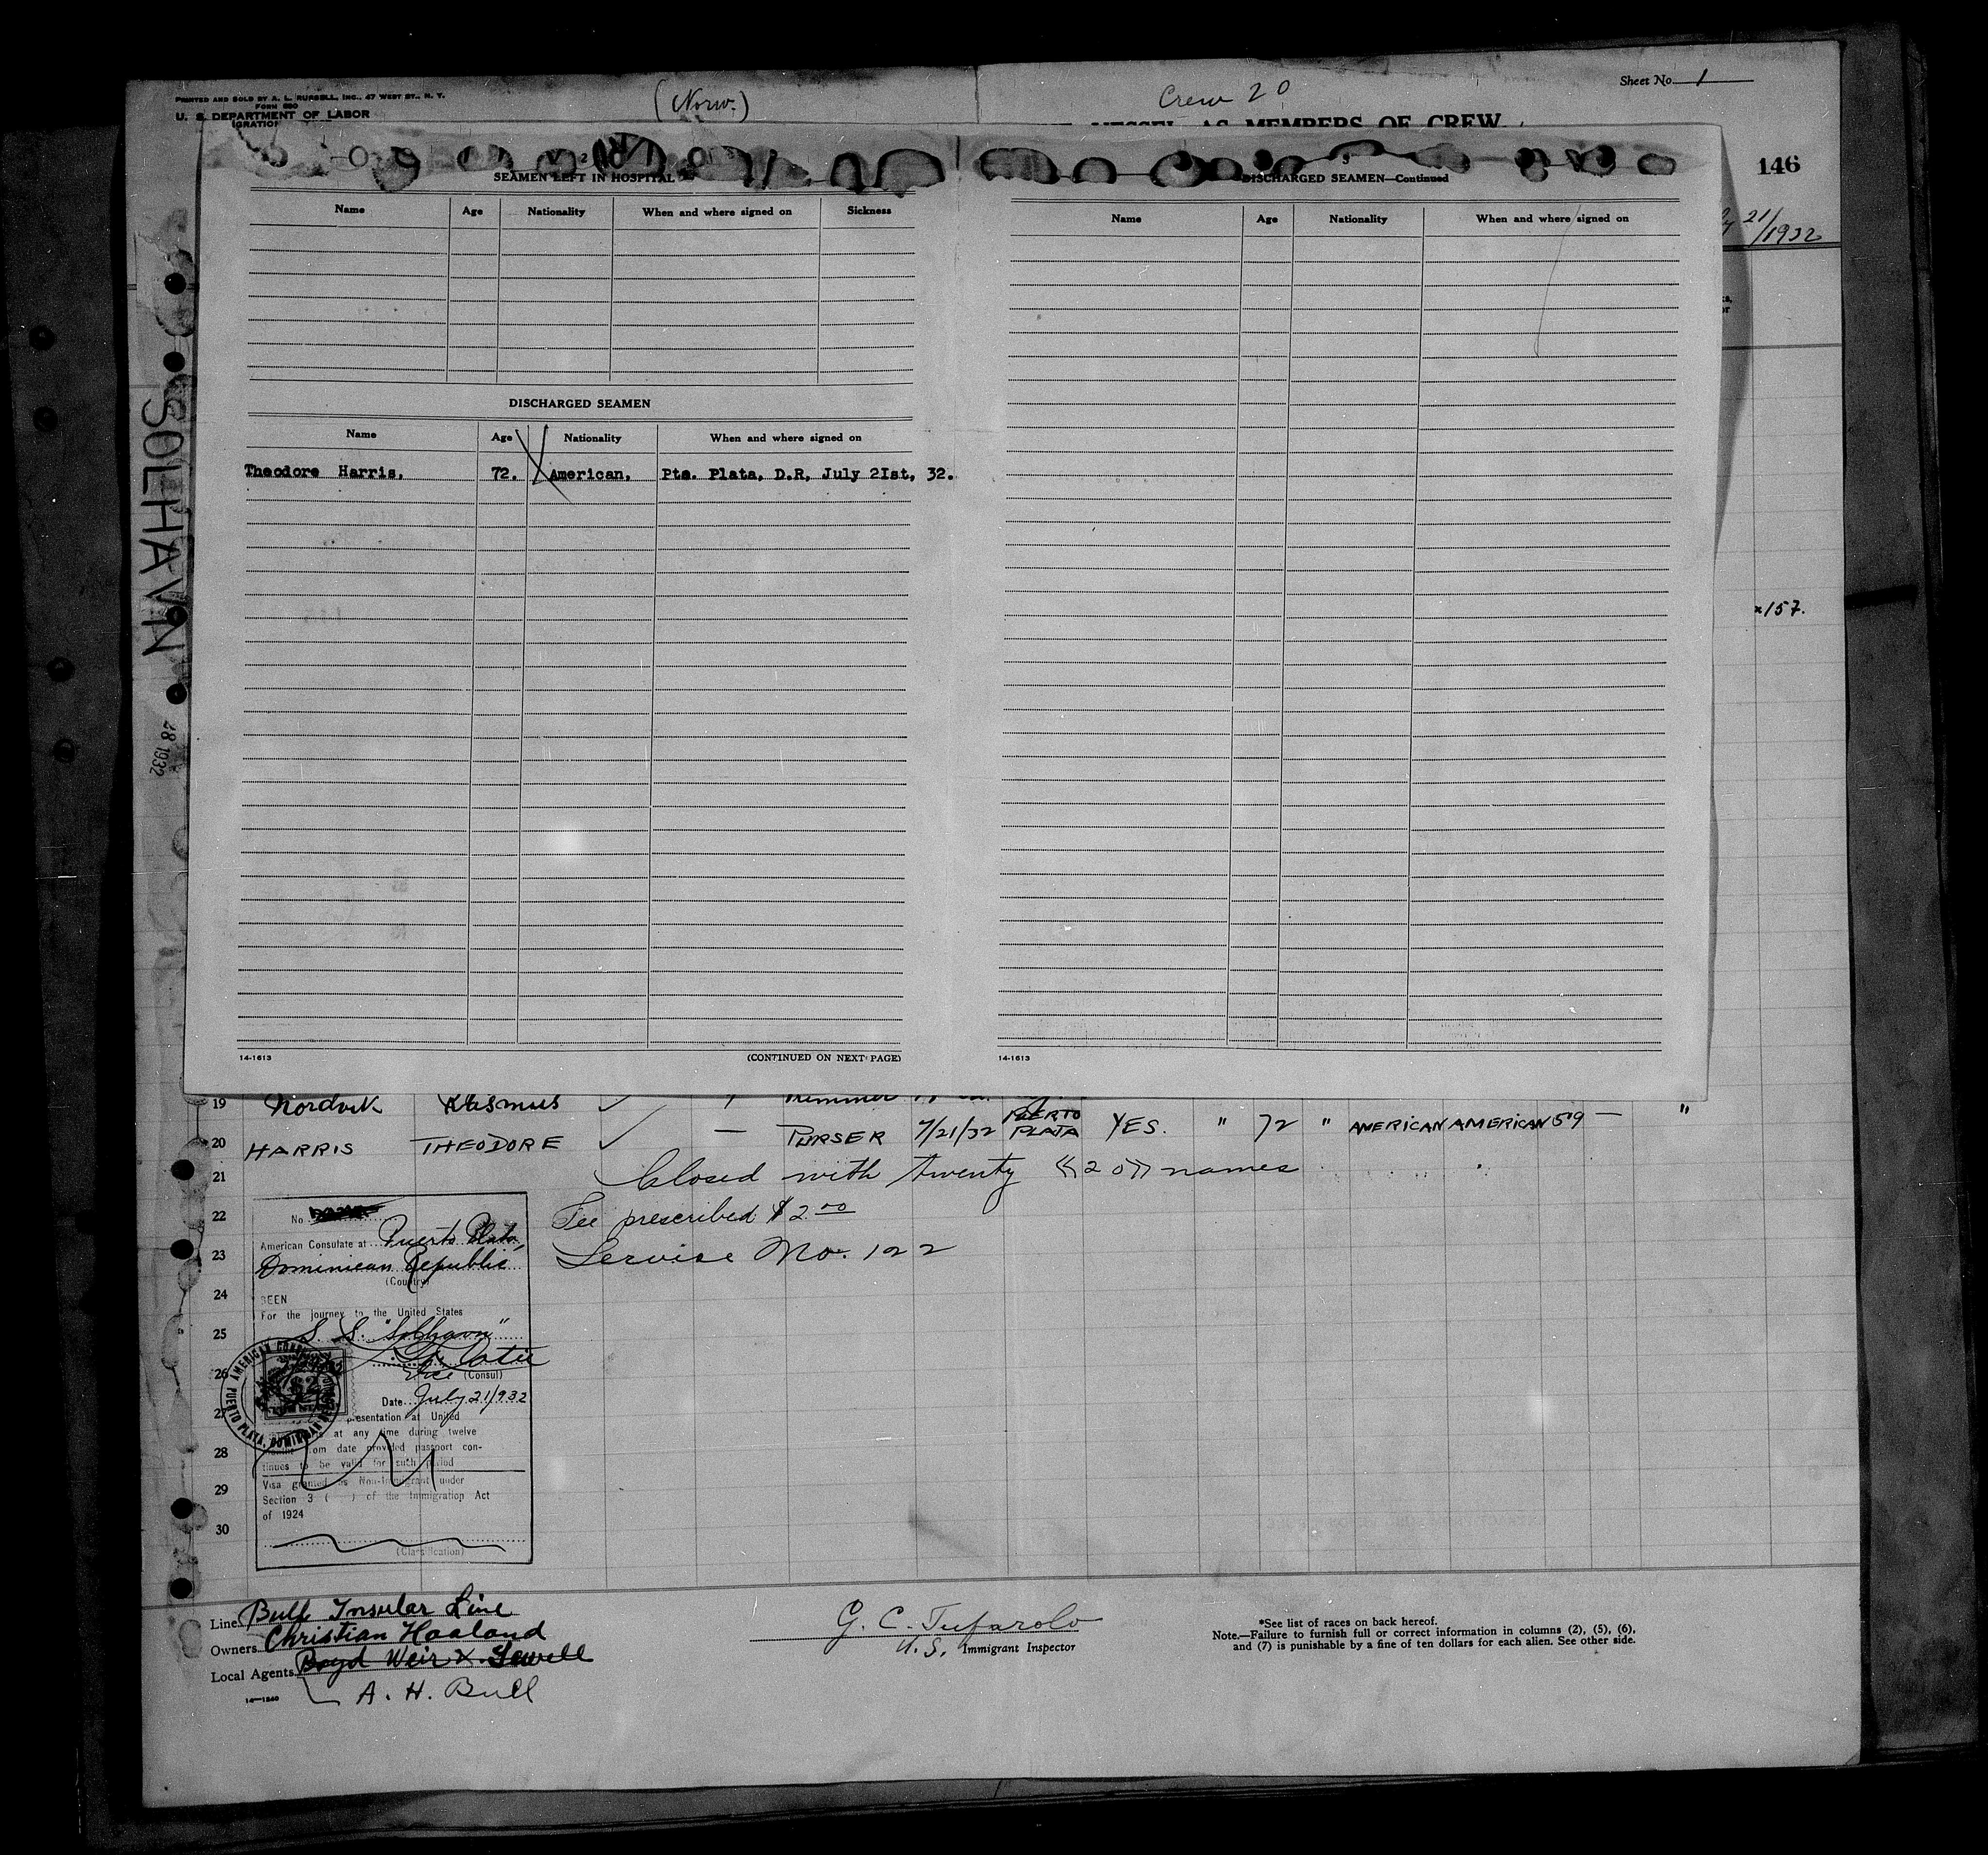 PRINTED AND SOLD BY A. L. RUSSELL, INC., 47 WEST ST., N. Y.
U. S. DEPARTMENT OF LABOR
(Norw.)
Crew 20
Sheet No. 1
VESSEL AS MEMBERS OF CREW
146
21/1932
SOLHAVN
28 1932
2
SEAMEN LEFT IN HOSPITAL
Name Age Nationality When and where signed on Sickness
DISCHARGED SEAMEN
Name Age Nationality When and where signed on
Theodore Harris, 72. American, Pta. Plata, D.R, July 2Ist, 32.
14-1613
(CONTINUED ON NEXT PAGE)
3
DISCHARGED SEAMEN—Continued
Name Age Nationality When and where signed on
14-1613
157.
19 Nordvik Rasmus
20 HARRIS THEODORE ✓ — PURSER 7/21/32 PUERTO PLATA YES. " 72 " AMERICAN AMERICAN 5'9 — "
21 Closed with twenty ((20)) names
22 Fee prescribed $2.00
23 Service No. 122
24
25
26
27
28
29
30
No
American Consulate at Puerto Plata,
Dominican Republic
(Country)
SEEN
For the journey to the United States
S. S. "Solhavn"
Vice (Consul)
Date July 21/932
presentation at United
at any time during twelve
om date provided passport con-
tinues to be valid for such period
Visa granted as Non-Immigrant under
Section 3 ( ) of the Immigration Act
of 1924
(Classification)
AMERICAN
PUERTO PLATA, DOMINICAN
Line Bull Insular Line
Owners Christian Haaland
Local Agents Boyd Weir & Sewell
A. H. Bull
14—1240
G. C. Tufarolo
U. S. Immigrant Inspector
*See list of races on back hereof.
Note.—Failure to furnish full or correct information in columns (2), (5), (6),
and (7) is punishable by a fine of ten dollars for each alien. See other side.